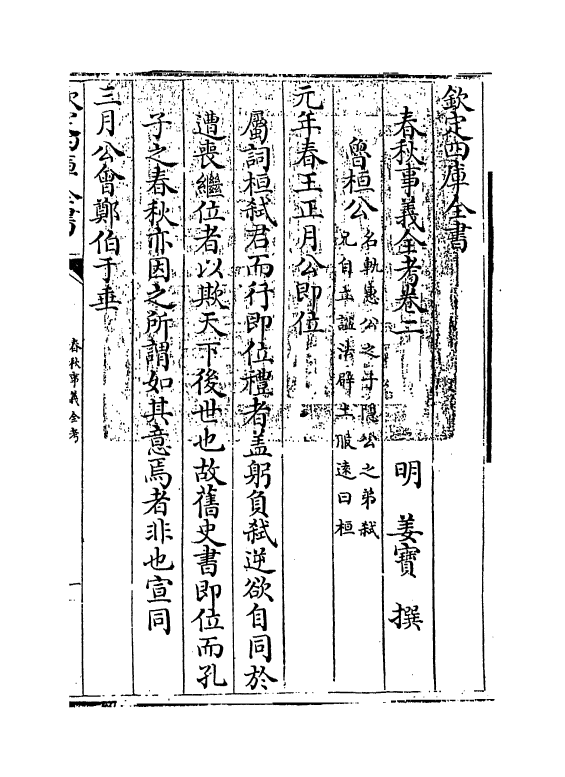 欽定四庫全書
春秋事義全考卷二
明 姜寶 撰
魯桓公
名軌惠公之子隱公之弟弑
兄自立諡法辟土服遠曰桓
元年春王正月公即位
屬詞桓弑君而行即位禮者盖躬負弑逆欲自同於
遭喪繼位者以欺天下後世也故舊史書即位而孔
子之春秋亦因之所謂如其意焉者非也宣同
三月公會鄭伯于垂
欽定四庫全書
春秋事義全考
一